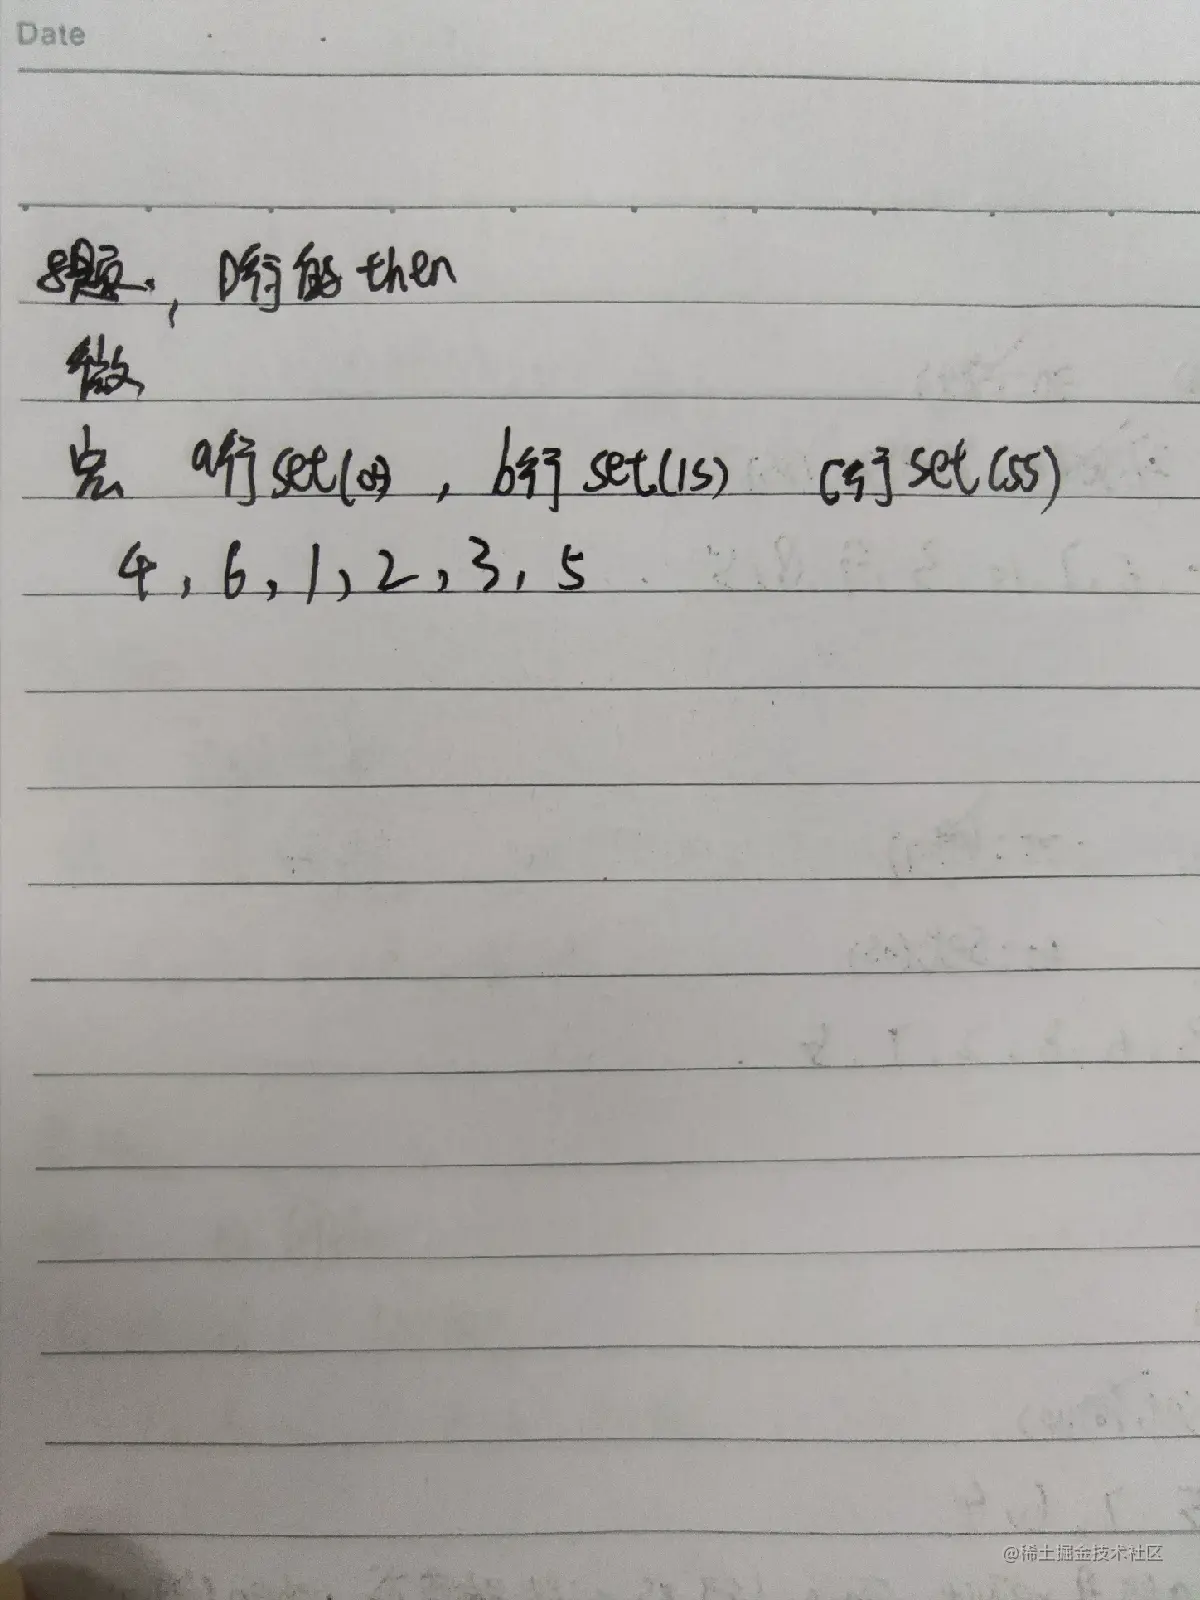 Date
8题, D行的then
微
宏 a行set(0s), b行set(1s) c行set(5s)
4, 6, 1, 2, 3, 5
@稀土掘金技术社区